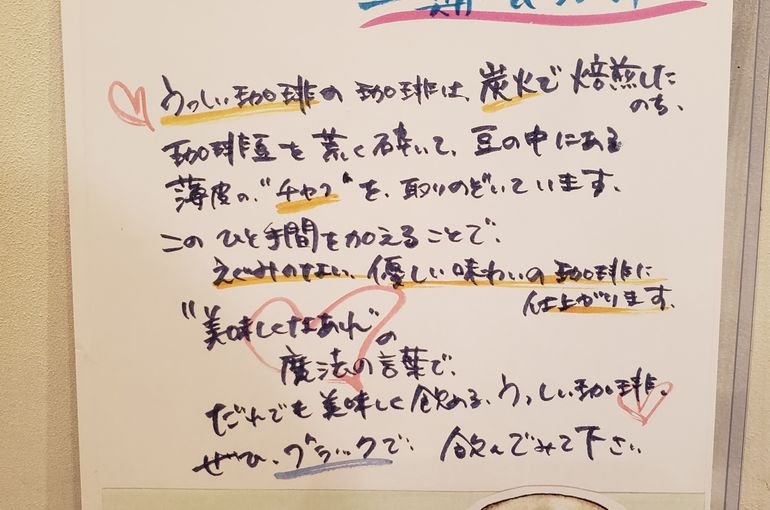 うっしい珈琲の珈琲は、炭火で焙煎した
のち、
珈琲豆を荒く砕いて、豆の中にある
薄皮の、"チャフ"を、取りのぞいています。
このひと手間を加えることで、
えぐみのない、優しい味わいの珈琲に
仕上がります。
"美味しくなあれ"の
魔法の言葉で、
だれでも美味しく飲める、うっしい珈琲。
ぜひ、ブラックで、飲んでみて下さい